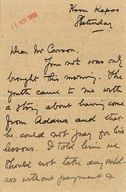 15 NOV 1910
Kom Kapou
Saturday.
Dear Mr Carson.
Your note was only
brought this morning. The
youth came to me with
a story about having come
from Adana and that
he could not pay for his
lessons. I told him we
should not take any
without payment &